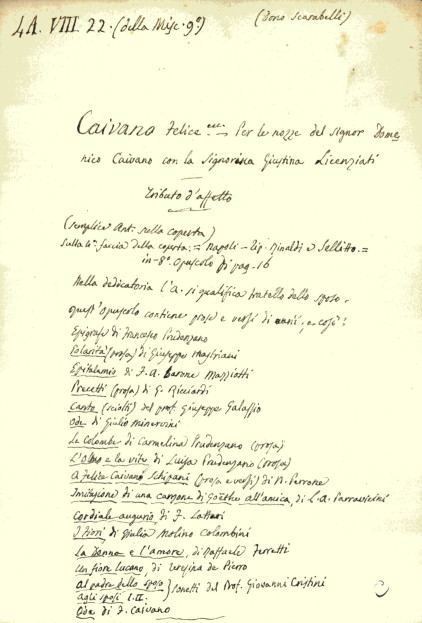 4A. VIII. 22. (della Misc. 9ª)
(Dono Scarabelli)
Caivano Felice ecc. — Per le nozze del signor Dome
nico Caivano con la Signorina Giustina Licenziati
Tributo d'affetto
(semplice Ant: sulla coperta)
sulla 4ª faccia della coperta: = Napoli - Tip. Rinaldi e Sellitto. =
in-8º. Opuscolo di pag. 16
Nella dedicatoria l'a. si qualifica fratello dello sposo.
quest'opuscolo contiene prose e versi di varii, e così:
Epigrafe di Francesco Prudenzano
Polarità (prosa) di Giuseppe Mastriani
Epitalamio di F. A. Barone Mazziotti
Precetti (prosa) di G. Ricciardi
Canto (sciolti) del prof. Giuseppe Galassio
Ode di Giulio Minervini
Le Colombe di Carmelina Prudenzano (prosa)
L'Olmo e la vite di Luisa Prudenzano (prosa)
A Felice Caivano Schipani (prosa e versi) di N. Perrone
Imitazione di una canzone di Goëthe all'amica, di L. A. Parravicini
Cordiale augurio di F. Lattari
I Fiori di Giulia Molino Colombini
La Donna e l'amore, di Raffaele Ferretti
Un fiore Lucano, di Teresina de Pierro
Al padre dello sposo
Agli sposi I. II.
} sonetti del Prof. Giovanni Cristini
Oda di F. Caivano